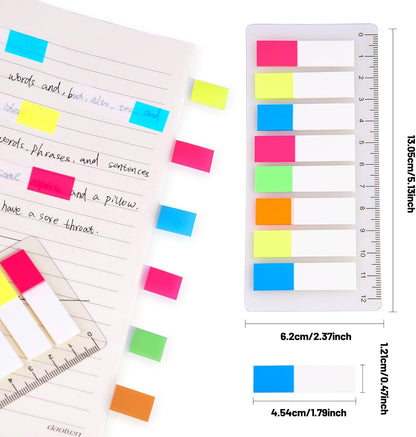 words and, but, also, too, and
words. Phrases. and sentences
and a pillow.
have a sore throat.
daolien
0
1
2
3
4
5
6
7
8
9
10
11
12
13.05cm/5.13inch
6.2cm/2.37inch
1.21cm/0.47inch
4.54cm/1.79inch